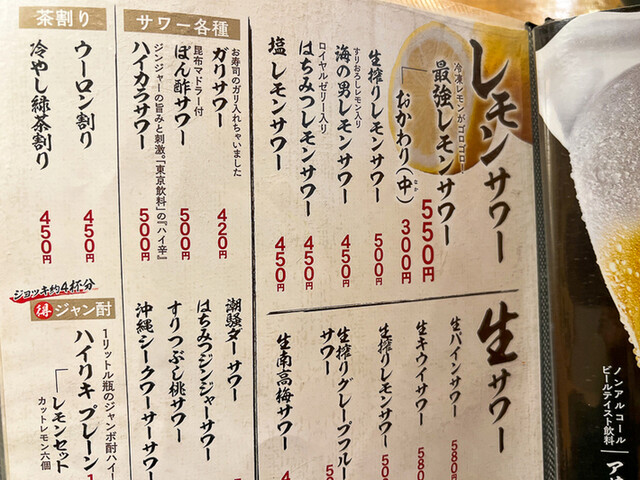 レモンサワー
冷凍レモンがゴロゴロ!
最強レモンサワー 550円
おかわり(中) 300円
なか
生搾りレモンサワー 500円
すりおろしレモン入り
海の男レモンサワー 450円
ロイヤルゼリー入り
はちみつレモンサワー 450円
塩レモンサワー 450円
サワー各種
お寿司のガリ入れちゃいました
ガリサワー 420円
昆布マドラー付
ぽん酢サワー 500円
ジンジャーの旨みと刺激。「東京飲料」の『ハイ辛』
ハイカラサワー 500円
茶割り
ウーロン割り 450円
冷やし緑茶割り 450円
生サワー
生パインサワー 580円
生キウイサワー 580
生搾りレモンサワー 50
生搾りグレープフルー
サワー 50
生南高梅サワー 4
潮騒ダーサワー
はちみつジンジャーサワー
すりつぶし桃サワー
沖縄シークワーサーサワー
ジョッキ約4杯分
得 ジャン酎
1リットル瓶のジャンボ酎ハイ
ハイリキ プレーン 1
レモンセット
カットレモン六個
ノンアルコール
ビールテイスト飲料
ア